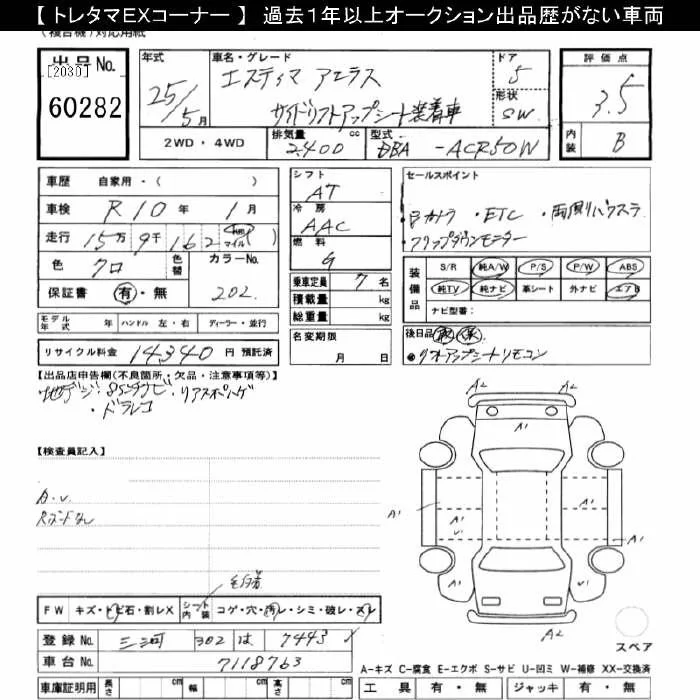 【 トレタマEXコーナー 】 過去1年以上オークション出品歴がない車両
(複合機)対応用紙
出品No.
[2030]
60282
年式
25/5月
車名・グレード
エスティマ アエラス
サイドリフトアップシート装着車
ドア
5
形状
SW
評価点
3.5
内装
B
2WD・4WD
排気量 cc
2400
型式
DBA -ACR50W
車歴 自家用・( )
車検 R10年 1月
走行 15万9千162 km マイル( )
色 クロ
色替
カラーNo.
202
保証書 有・無
シフト
AT
冷房
AAC
燃料
G
乗車定員 7名
積載量 kg
総重量 kg
セールスポイント
・ETC ・両側パワスラ
・フリップダウンモニター
装備品
S/R 純A/W P/S P/W ABS
純TV 純ナビ 革シート 外ナビ エアB
ナビ型番:
モデル年式 年 ハンドル 左・右 ディーラー・並行
リサイクル料金 14340円 預託済
名変期限
月 日
後日品
リフトアップシートリモコン
【出品店申告欄(不良箇所・欠品・注意事項等)】
地デジ・BSナビ・リアスポハゲ
・ドラレコ
【検査員記入】
A・U
Rボードなし
毛付着
FW キズ・トビ石・割レX シート内装 コゲ・穴・汚レ・シミ・破レ・スレ
登録No. 三河 302 は 7443
車台No. 7118763
車庫証明用 長さ cm 幅 cm 高さ cm
A2 A2
A1
A1
A1 A1
A1
U
A1
A2
スペア
A−キズ C−腐食 E−エクボ S−サビ U−凹ミ W−補修 XX−交換済
工具 有・無 ジャッキ 有・無